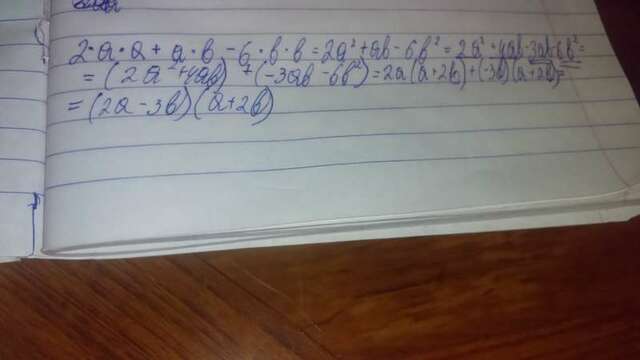 2·a·a + a·b - 6·b·b = 2a² + ab - 6b² = 2a² + 4ab - 3ab - 6b² =
= (2a² + 4ab) + (-3ab - 6b²) = 2a(a+2b) + (-3b)(a+2b) =
= (2a - 3b)(a+2b)